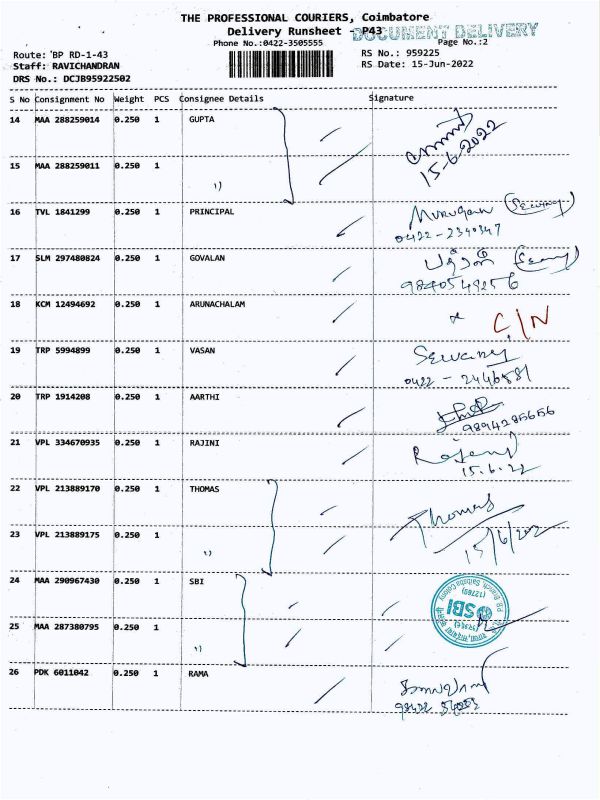 THE PROFESSIONAL COURIERS, Coimbatore
Delivery Runsheet - P43
DOCUMENT DELIVERY
Phone No.:0422-3505555 Page No.:2
Route: BP RD-1-43 RS No.: 959225
Staff: RAVICHANDRAN RS Date: 15-Jun-2022
DRS No.: DCJB95922502
S No Consignment No Weight PCS Consignee Details Signature
14 MAA 288259014 0.250 1 GUPTA
15-6-2022
15 MAA 288259011 0.250 1 "
16 TVL 1841299 0.250 1 PRINCIPAL Murugan (Security)
0422-2340347
17 SLM 297480824 0.250 1 GOVALAN
9840549256
18 KCM 12494692 0.250 1 ARUNACHALAM C/N
19 TRP 5994899 0.250 1 VASAN Security
0422 - 2446581
20 TRP 1914208 0.250 1 AARTHI
9894285656
21 VPL 334670935 0.250 1 RAJINI Rajini
15.6.22
22 VPL 213889170 0.250 1 THOMAS Thomas
23 VPL 213889175 0.250 1 "
15/6/202
24 MAA 290967430 0.250 1 SBI
SBI
25 MAA 287380795 0.250 1 "
26 PDK 6011042 0.250 1 RAMA